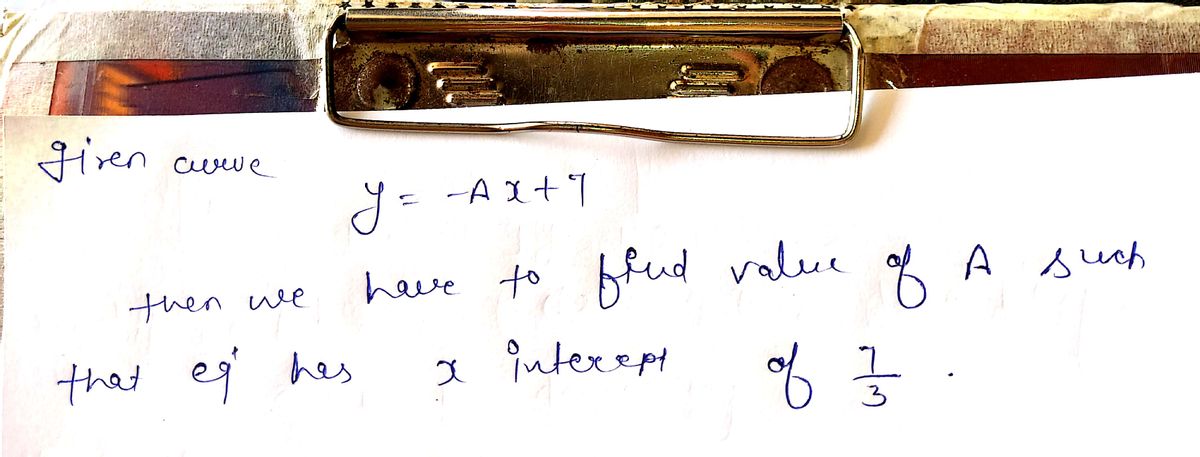 given curve
y = -Ax+7
then we have to find value of A such
that eq' has x intercept of 7/3 .